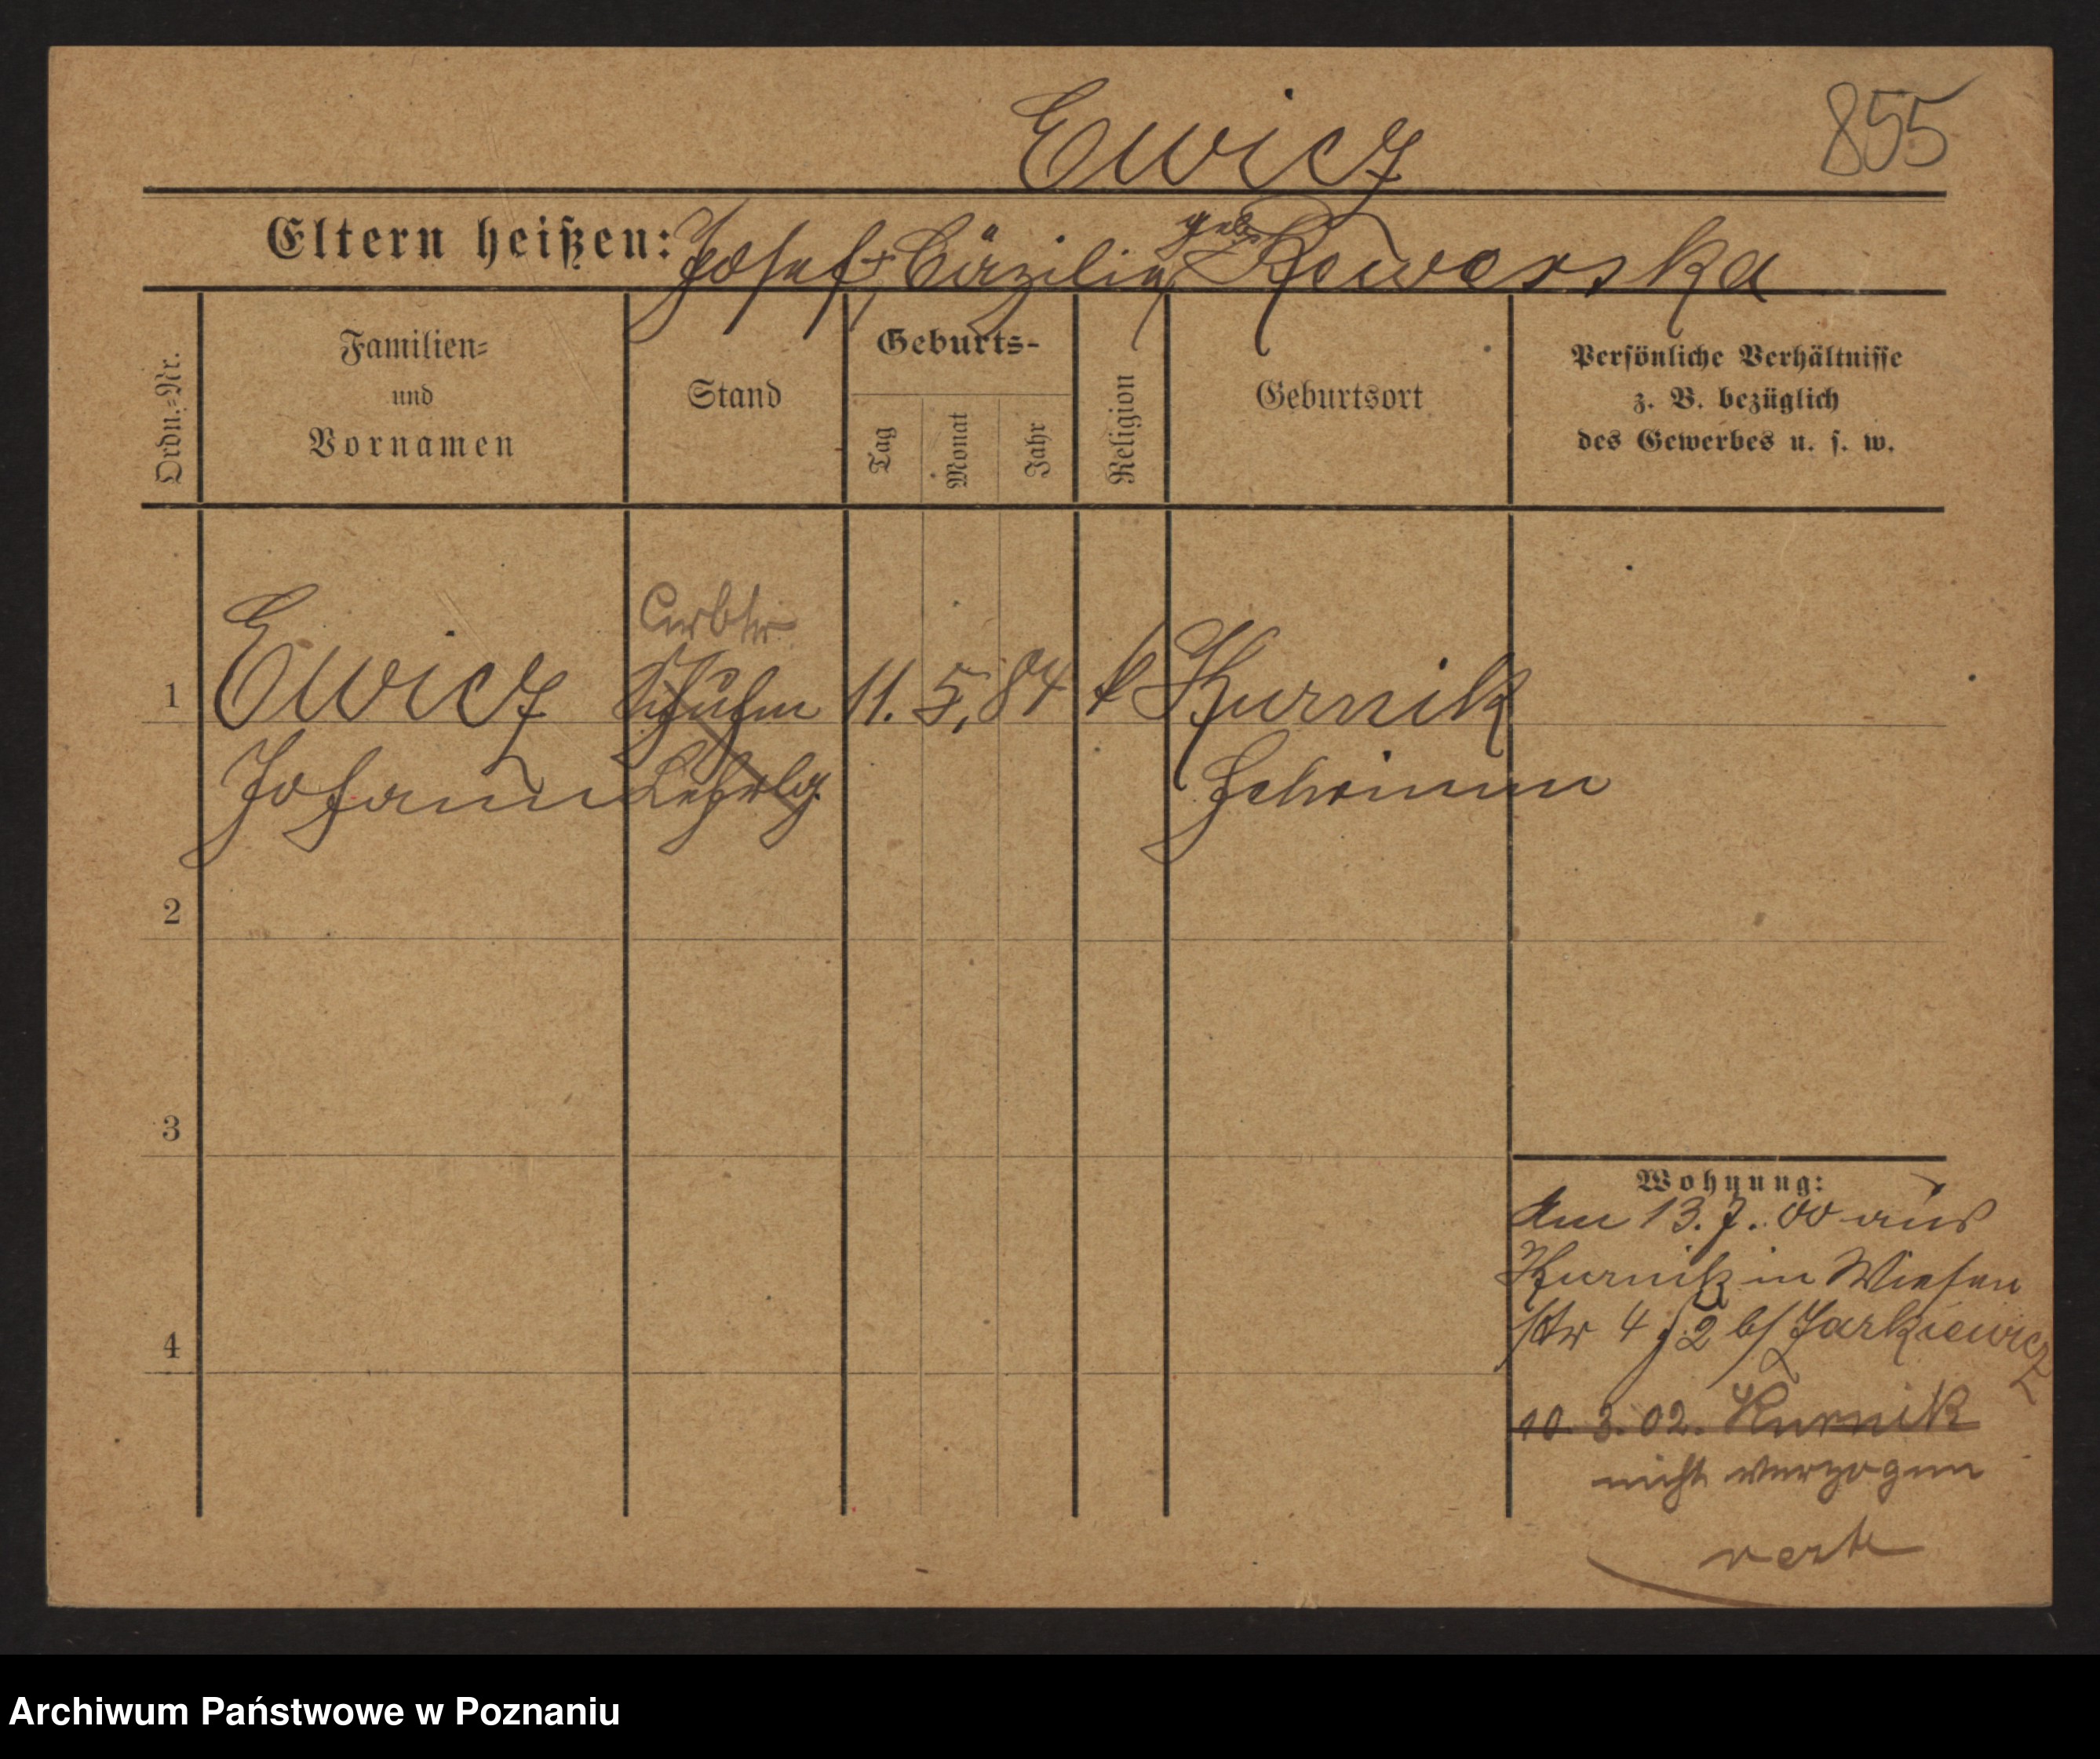 855
Ewicz
Eltern heißen: Josef + Cäzilia geb Kowerska
Ordn.-Nr.
Familien-
und
Vornamen
Stand
Geburts-
Tag
Monat
Jahr
Religion
Geburtsort
Persönliche Verhältnisse
z. B. bezüglich
des Gewerbes u. s. w.
Arbtr
1 Ewicz Schuhm 11. 5. 84 k Kurnik
Johann Lehrlg Schrimm
2
3
4
Wohnung:
Am 13. 7. 00 aus
Kurnik in Wiesen
str 4 2 b/ Jarkiewicz
10. 3. 02. Kurnik
nicht verzogen